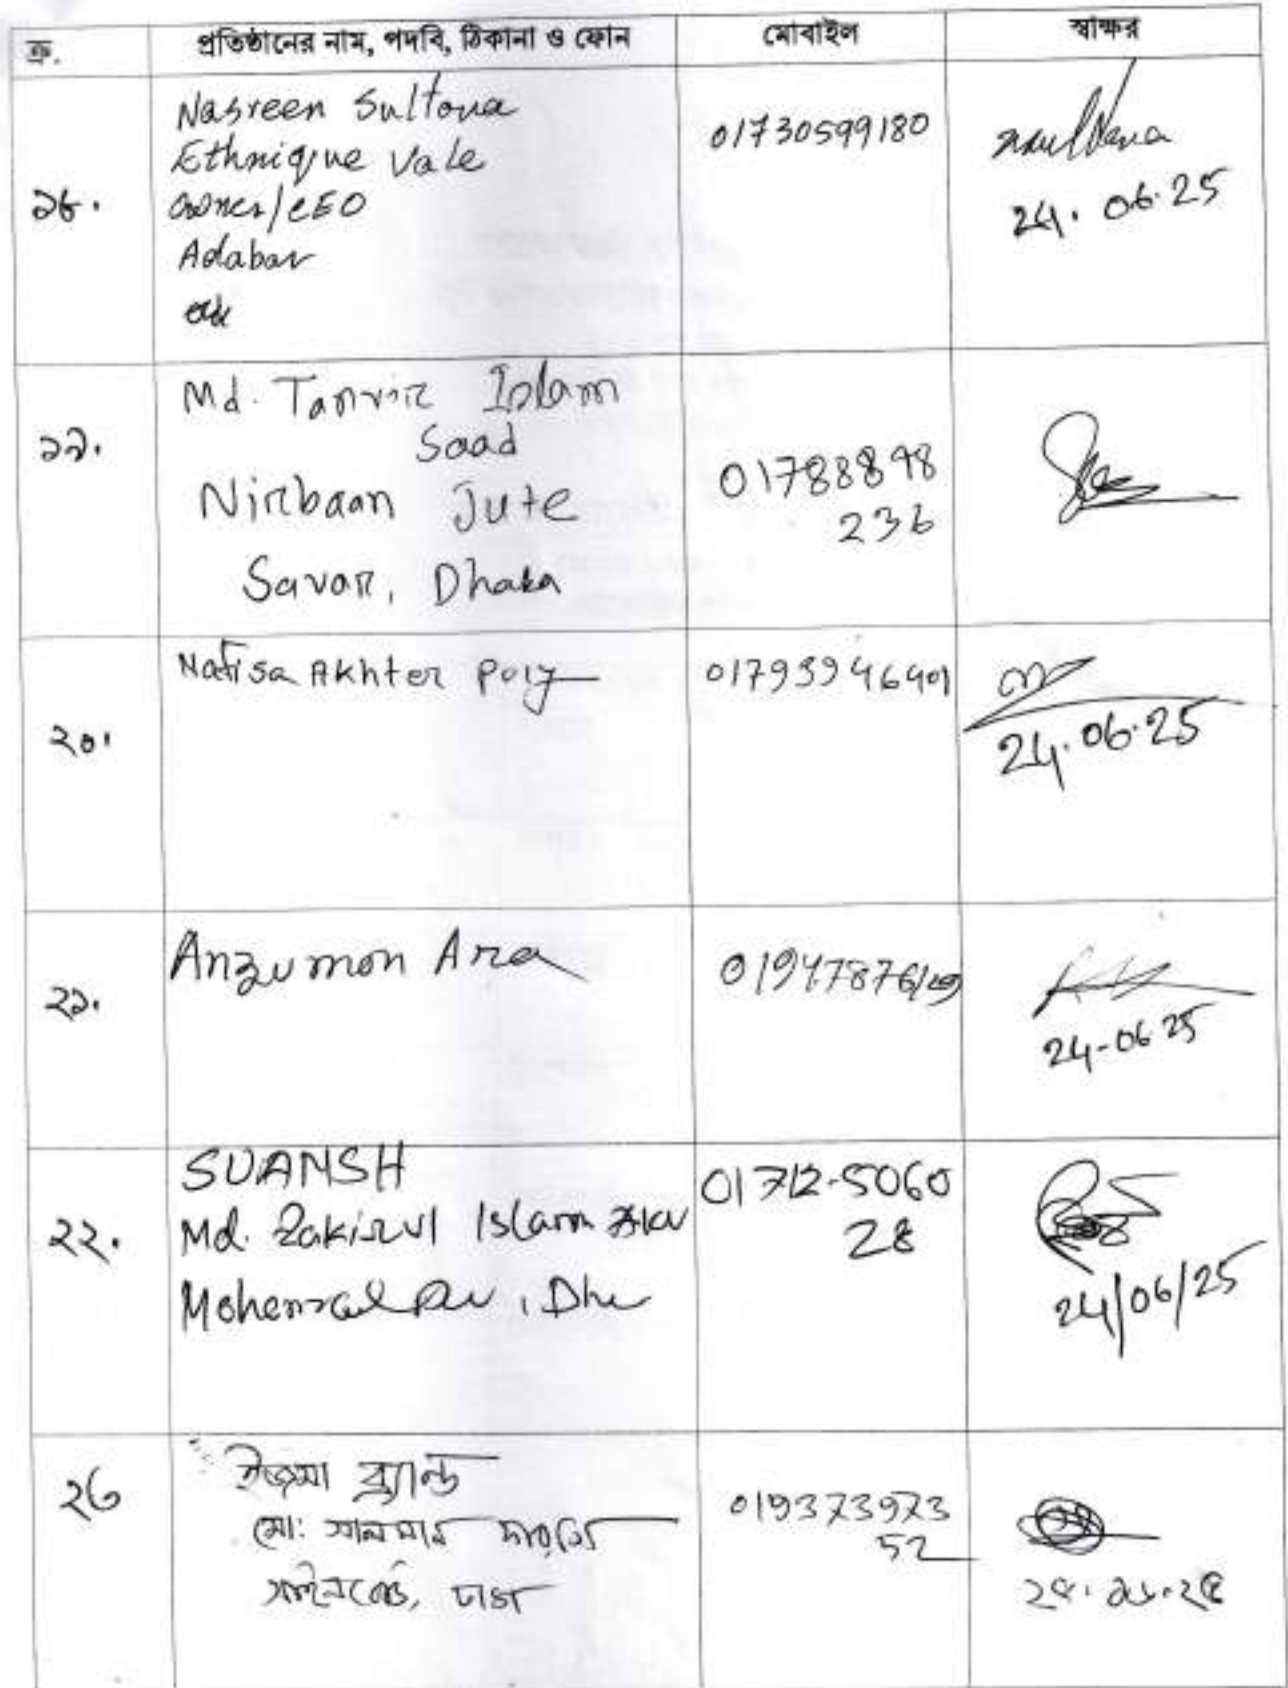 ক্র. প্রতিষ্ঠানের নাম, পদবি, ঠিকানা ও ফোন মোবাইল স্বাক্ষর
১৮.
Nasreen Sultana
Ethnique Vale
Owner/CEO
Adabar
01730599180
24.06.25
১৯.
Md. Tanvir Islam
Saad
Nirbaan Jute
Savar, Dhaka
01788898
236
২০.
Nafisa Akhter Poly
01793946401
24.06.25
২১.
Anzumon Ara
24-06 25
২২.
SUANSH
Md. Zakirul Islam
01712-5060
28
24/06/25
২৩
ব্র্যান্ড
মো: সালমান
সাইনবোর্ড, ঢাকা
019373973
52
২৪.০৬.২৫